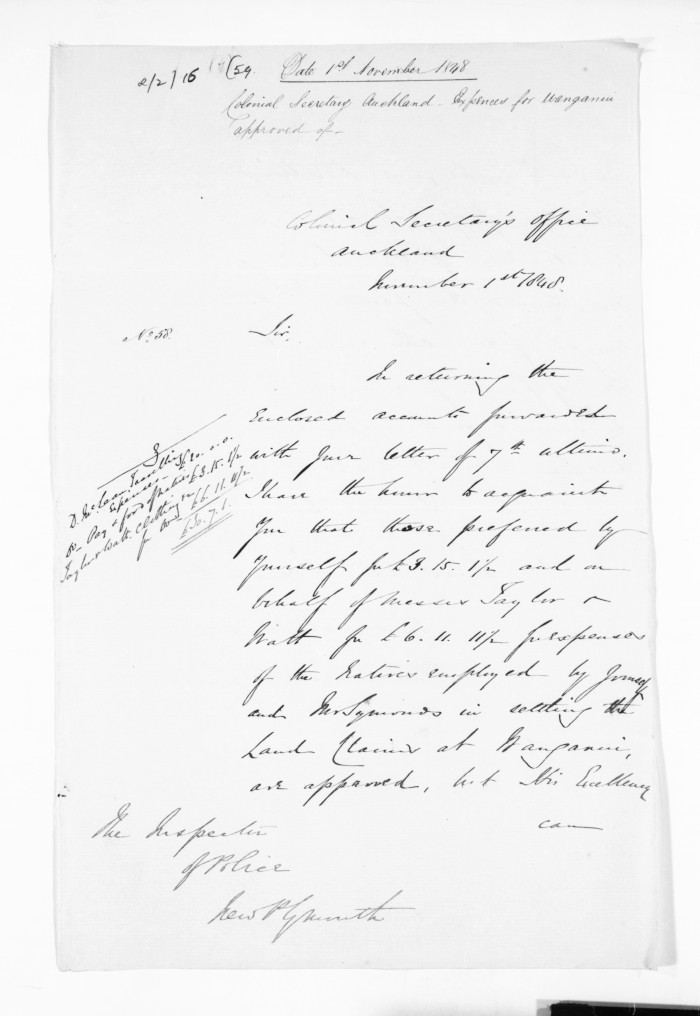 2/2) 16 (59. Date 1st November 1848
Colonial Secretary Auckland - Expences for Wanganui
approved of -
Colonial Secretary's Office
Auckland
November 1st 1848.
No 58.
Sir,
In returning the
Enclosed accounts forwarded
with your letter of 7th ultimo.
I have the honor to acquaint
you that those preferred by
Yourself for £3.15.1½ and on
behalf of Messrs Taylor &
Watt for £6.11.11½ for expenses
of the Natives employed by yourself
and Mr Symonds in settling the
Land Claims at Wanganui,
are approved, but His Excellency
can
D. McLean Travelling
Expenses £20.0.0.
Do - Pay & food of natives £3.15.1½
Taylor & Watt Clothing
for do £6.11.11½
£30.7.1.
The Inspector
of Police
New Plymouth